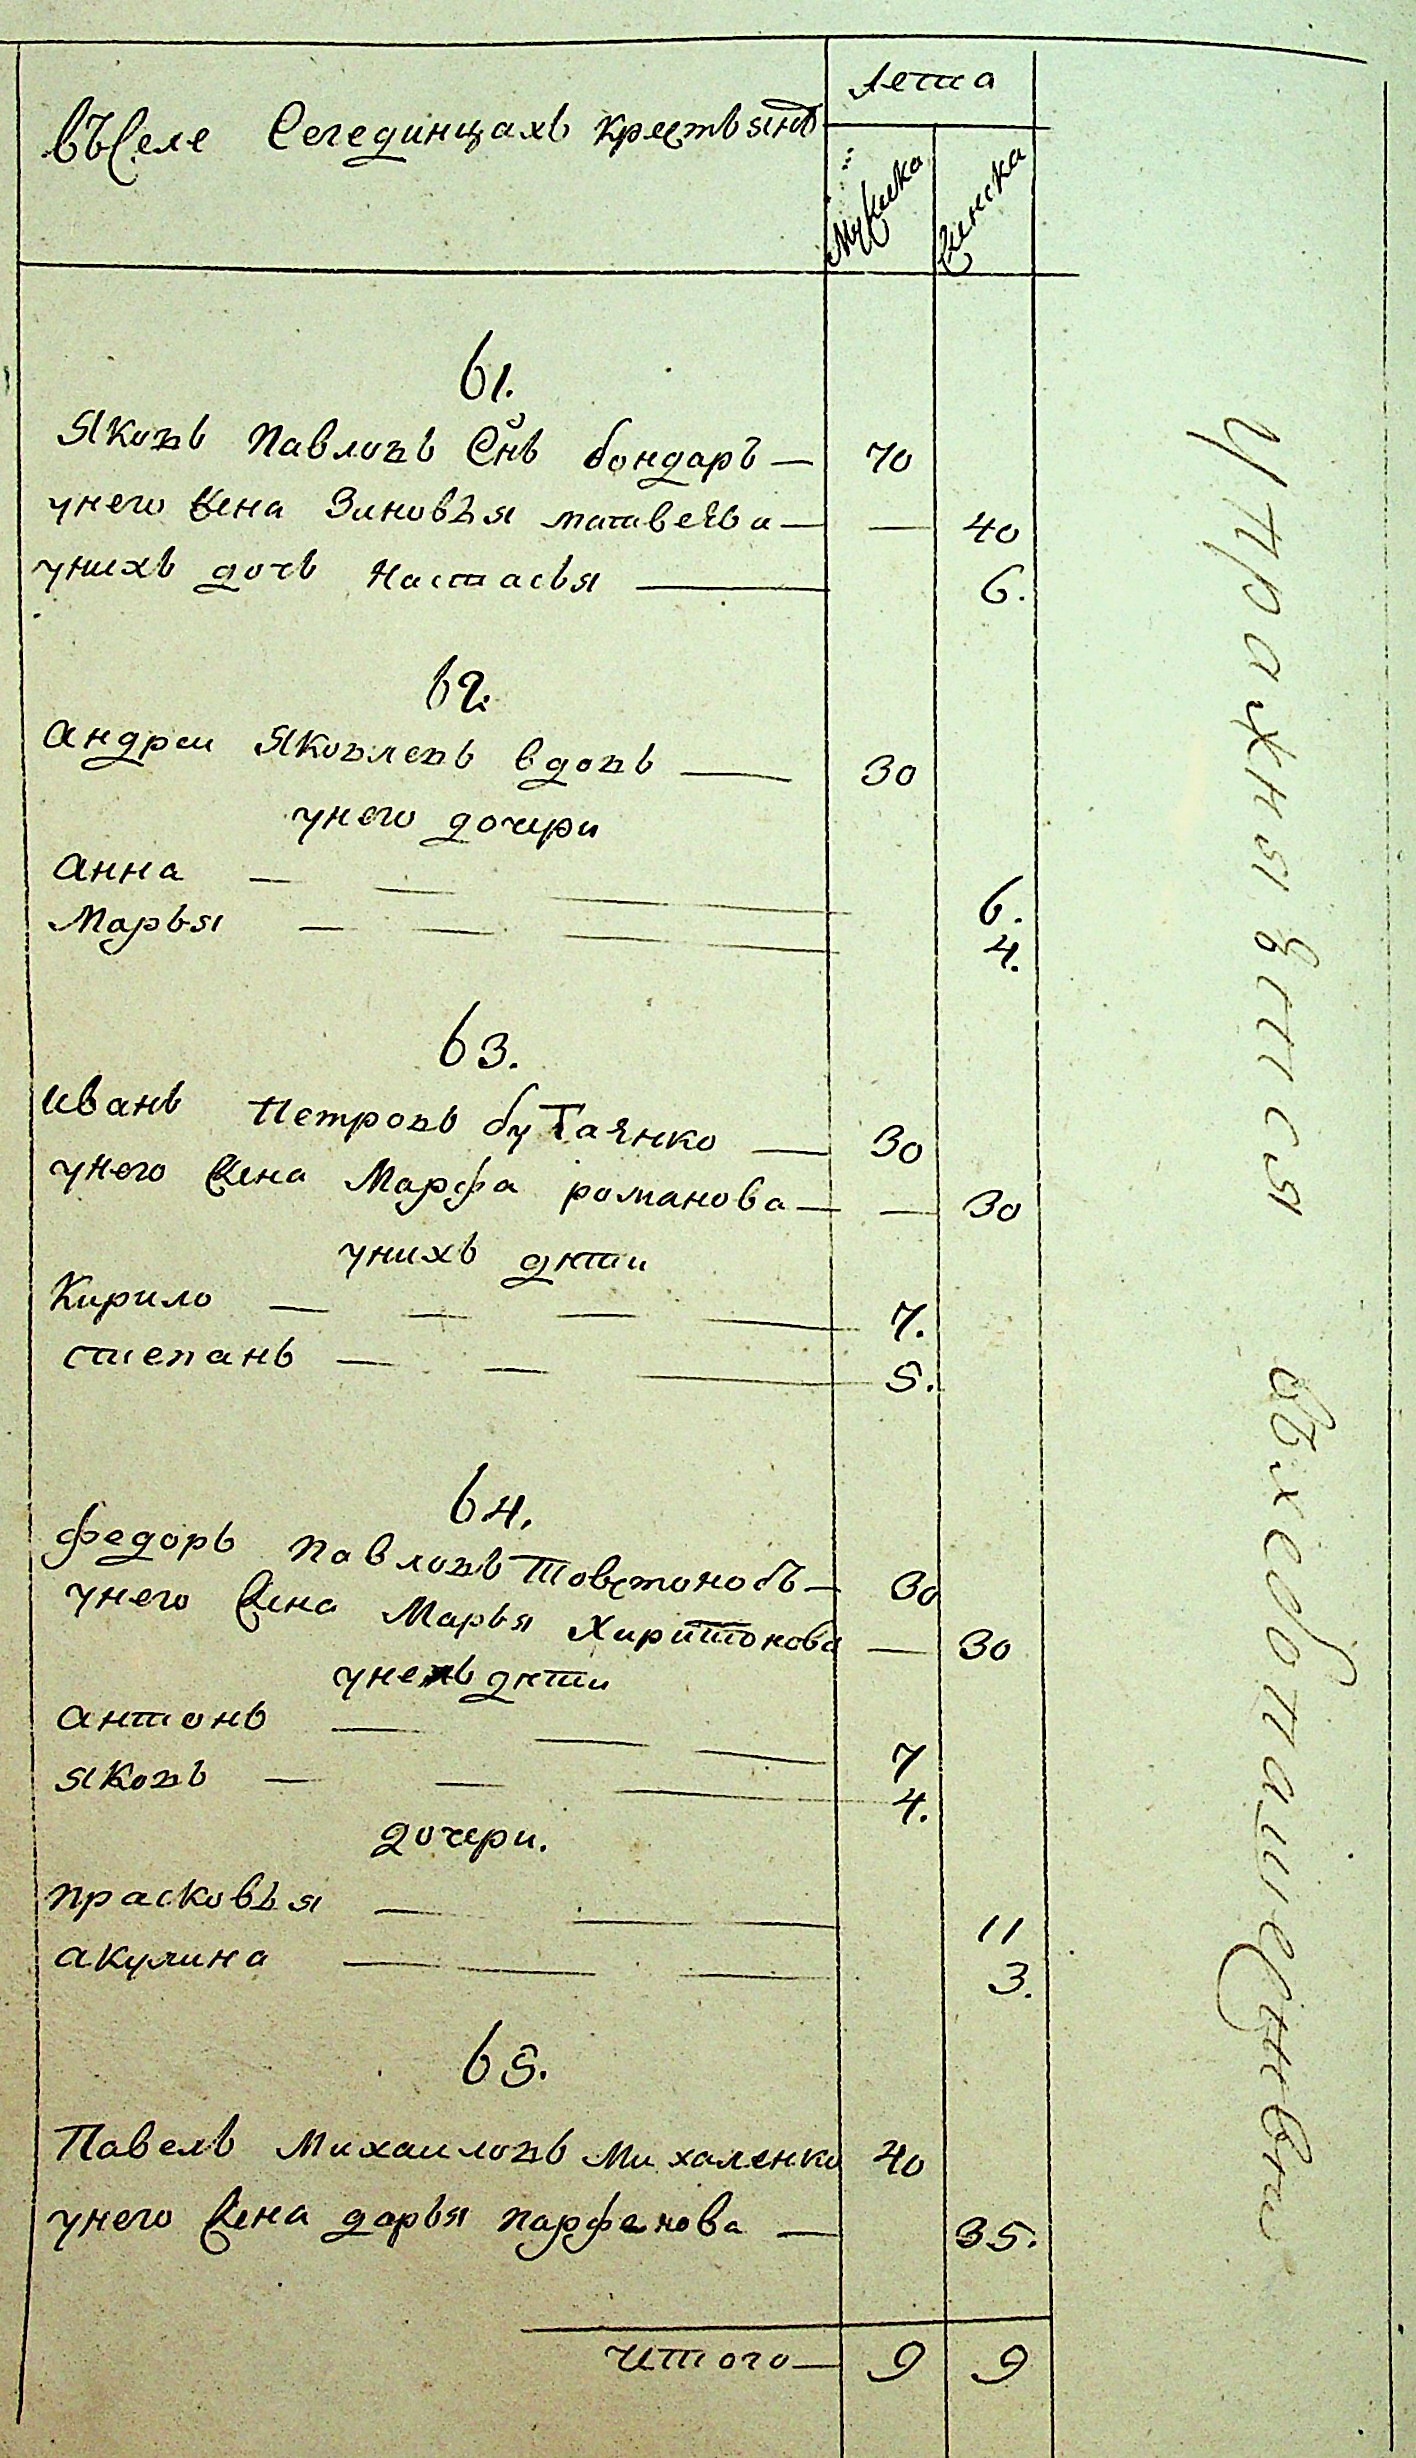 въ селе Сегединцахъ крестьянъ
Лета
Мужеска
Женска
61.
Яковъ Павловъ Снъ бондаръ — 70
у него жена Зиновъя матвеева — — 40
у нихъ дочь Настасья — 6.
62.
Андреи Яковлевъ вдовъ — 30
у него дочери
Анна — — — 6.
Марья — — — 4.
63.
Иванъ Петровъ бутаенко — 30
у него жена Марфа романова — — 30
у нихъ дѣти
Кирило — — — — 7.
степанъ — — — 5.
64.
Федоръ Павловъ Товстоносъ — 30
у него жена Марья Харитонова — 30
у нехъ дѣти
Антонъ — — — 7
Яковъ — — — 4.
дочери.
Прасковъя — — 11
Акулина — — — 3.
65.
Павелъ Михаиловъ Михаленко 40
у него жена дарья парфенова — 35.
Итого — 9 9